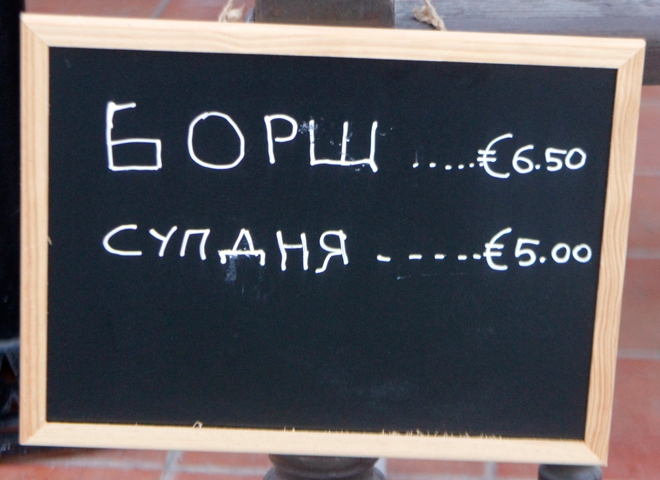 БОРЩ .....€6.50
СУП ДНЯ -----€5.00